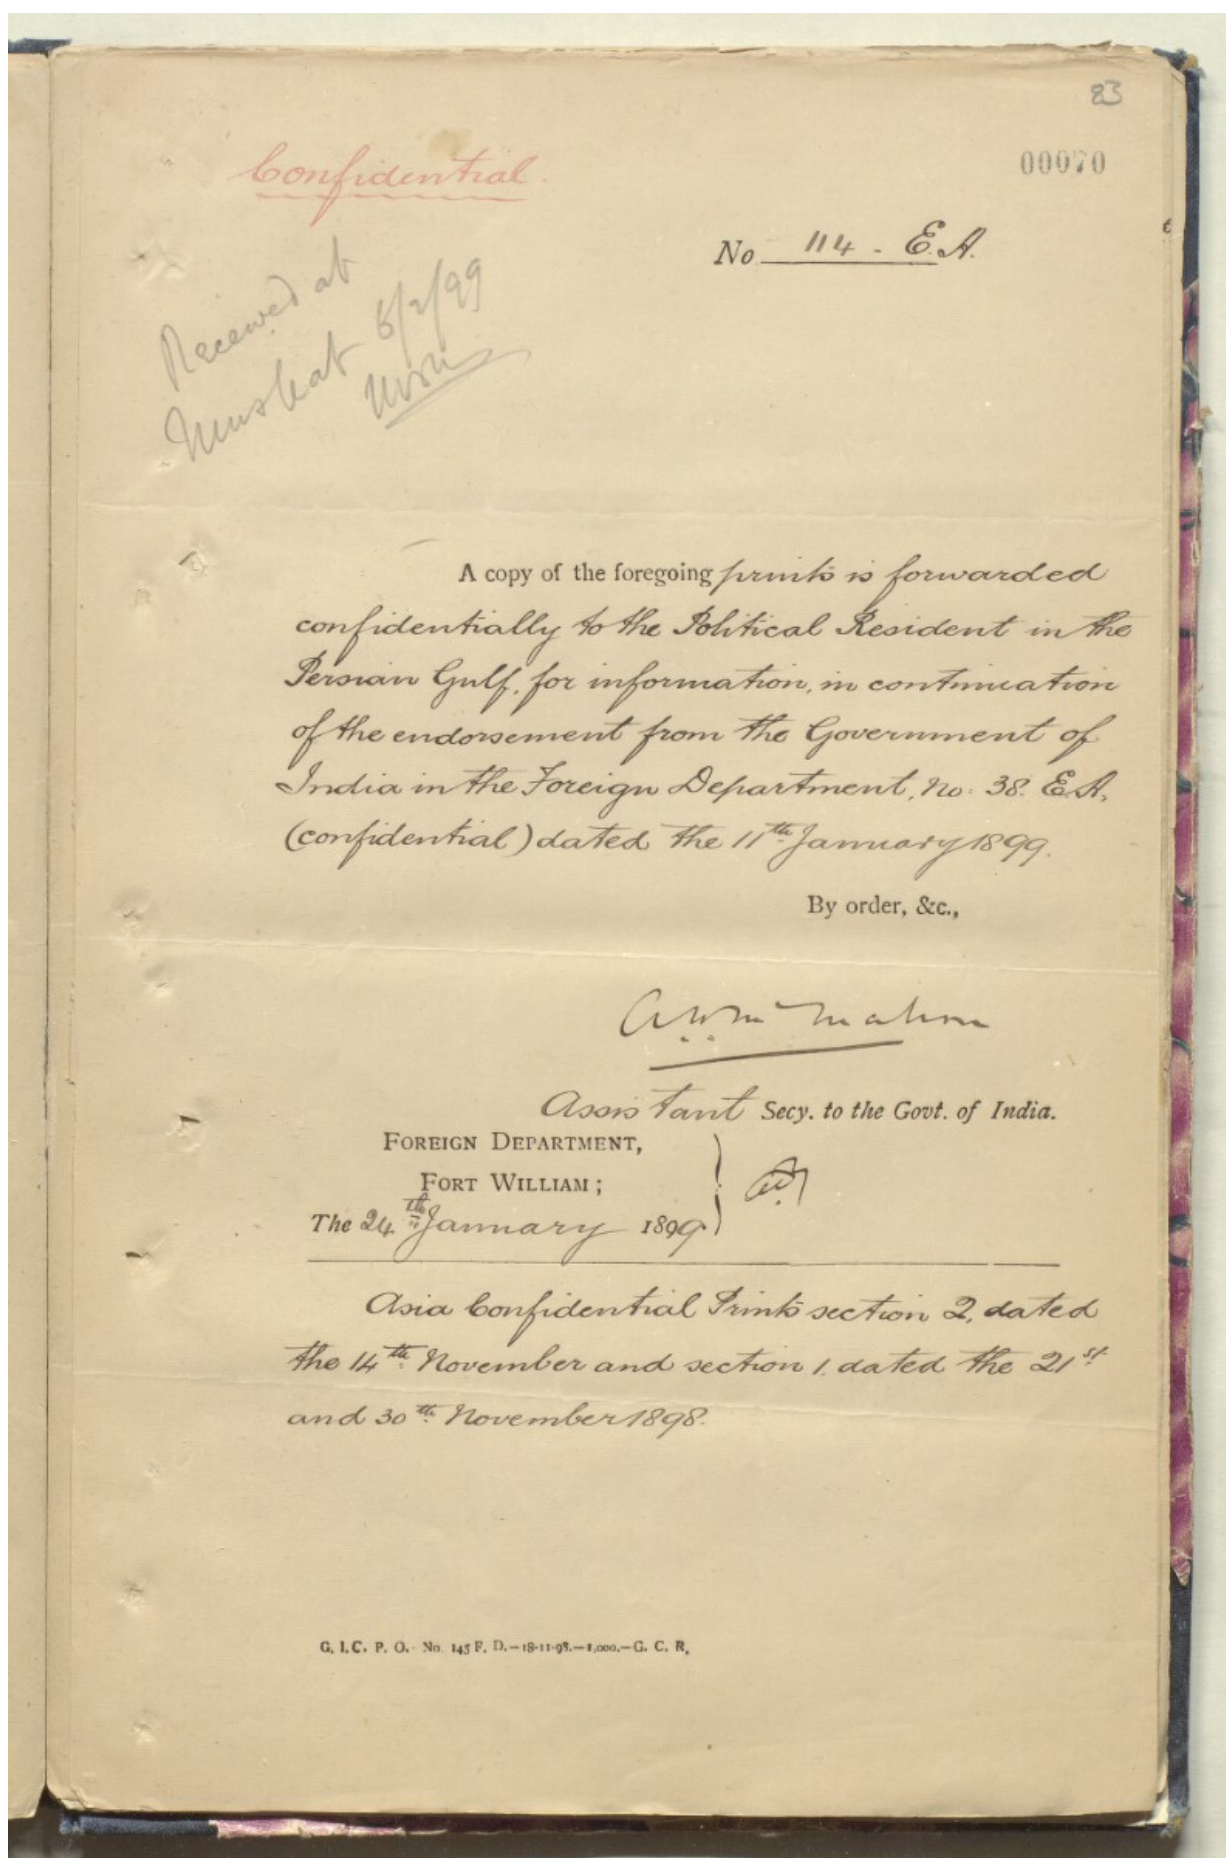 83
00070
Confidential.
No 114 - E.A.
Received at
Muskat 6/2/99
A copy of the foregoing prints is forwarded
confidentially to the Political Resident in the
Persian Gulf, for information, in continuation
of the endorsement from the Government of
India in the Foreign Department, No: 38. E.A.
(confidential) dated the 11th January 1899.
By order, &c.,
Assistant Secy. to the Govt. of India.
FOREIGN DEPARTMENT,
FORT WILLIAM;
The 24th January 1899
Asia Confidential Prints section 2, dated
the 14th November and section 1, dated the 21st
and 30th November 1898.
G. I. C. P. O. No. 145 F. D.—18-11-98.—1,000.—G. C. R.